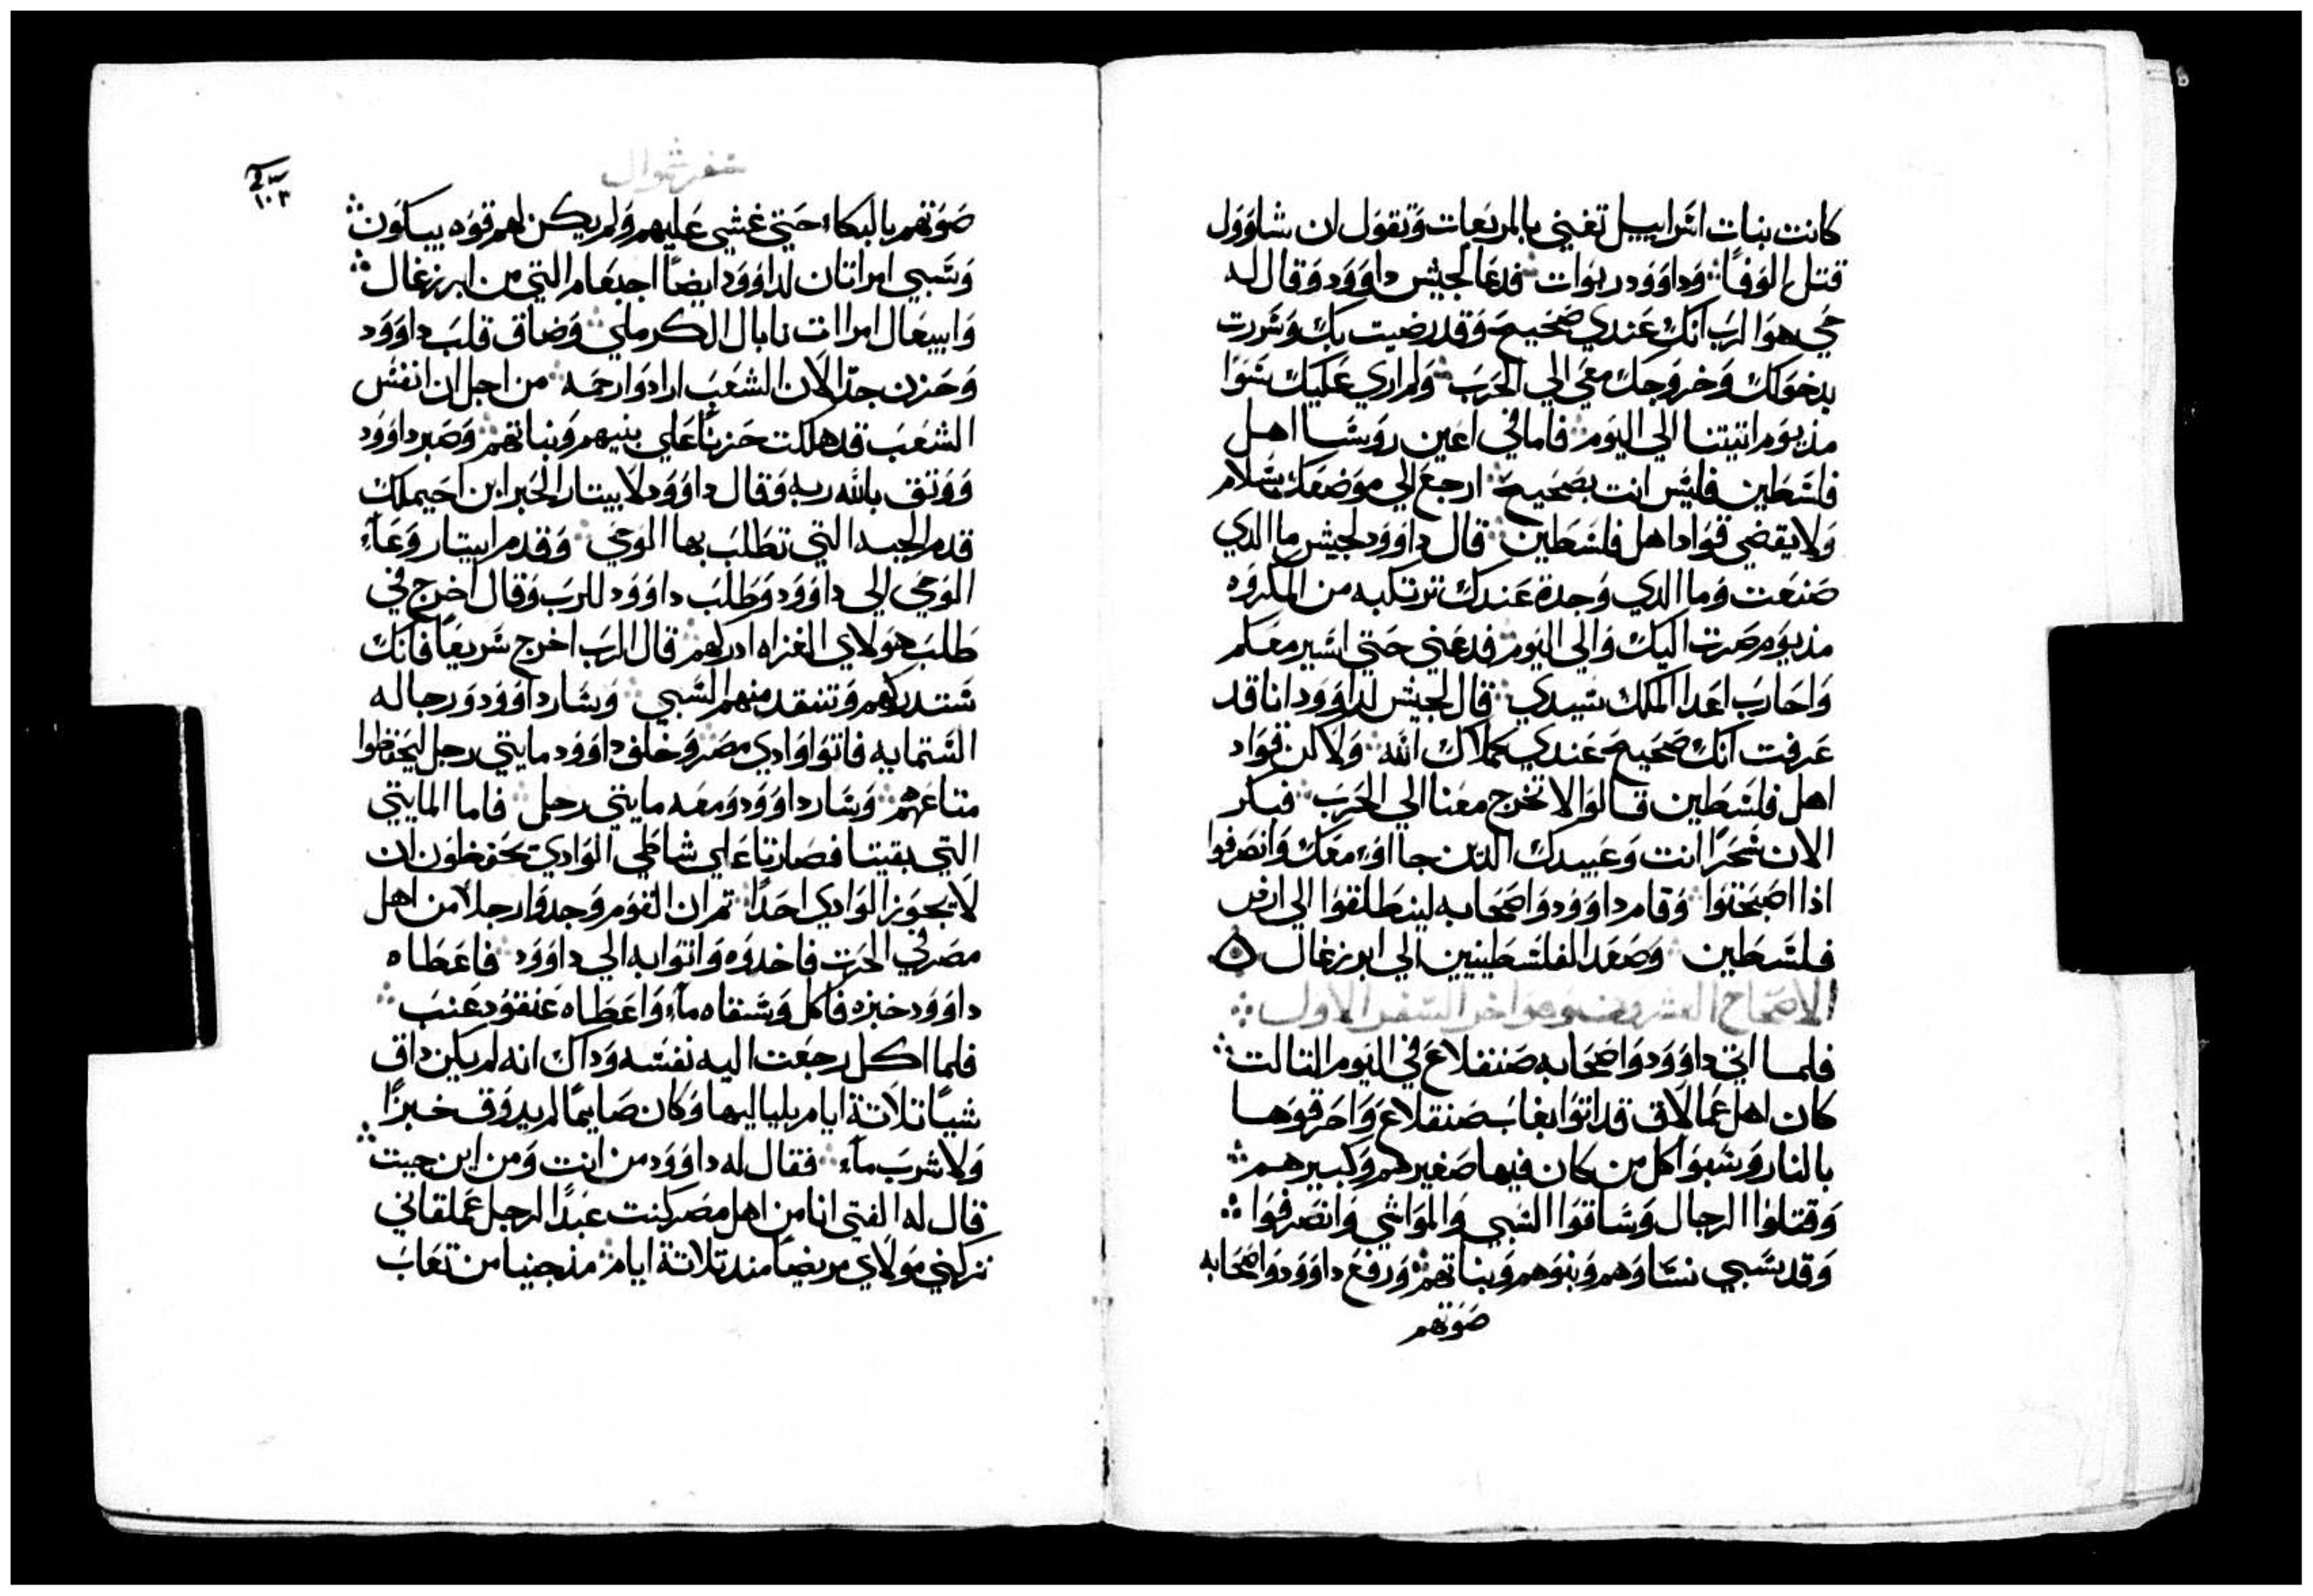 كانت بنات اسراييل تغني بالمربعات وتقول ان شاوول
قتل الوفاً وداوود ربوات فدعا لجيش داوود وقال له
حي هوا الرب انك عندي صحيح وقد رضيت بك وسررت
بدخولك وخروجك معي الي الحرب ولم اري عليك سوا
مذ يوم اتيتنا الي اليوم فاما في اعين روسا اهل
فلسطين فليس انت بصحيح ارجع الي موضعك بسلام
ولا يقضي قواد اهل فلسطين قال داوود لجيش ما الدي
صنعت وما الدي وجدة عندك ترتكبه من المكروه
مذ يوم صرت اليك والي اليوم فدعني حتي اسير معكم
واحارب اعدا الملك سيدي قال لجيش لداوود انا قد
عرفت انك صحيح عندي كملاك الله ولاكن قواد
اهل فلسطين قالوا لا تخرج معنا الي الحرب فبكر
الان سَحَرًا انت وعبيدك الدين جااوء معك وانصرفوا
اذا اصبحتوا وقام داوود واصحابه لينطلقوا الي ارض
فلسطين وصعد الفلسطينيين الي ابرزغال
الاصحاح العشرون وهو اخر السفر الاول
فلما اتي داوود واصحابه صنفلاع في اليوم التالت
كان اهل عمالاق قد اتوا بغاب صنقلاع واحرقوها
بالنار وسبوا كل من كان فيها صغيرهم وكبيرهم
وقتلوا الرجال وساقوا السبي والمواشي وانصرفوا
وقد سبي نساوهم وبنوهم وبناتهم ورفع داوود واصحابه
صوتهم
سفر شموال
١٠٣
صوتهم بالبكاء حتي غشي عليهم ولم يكن لهم قوه يبكون
وسبي امراتان لداوود ايضاً اجنعام التي من ابرزغال
وابيغال امراات نابال الكرملي وضاق قلب داوود
وحزن جدّا لان الشعب ارادوا رجمه من اجل ان انفس
الشعب قد هلكت حزنًا علي بنيهم وبناتهم وصبر داوود
ووتق بالله ربه وقال داوود لابيتار الحبر ابن احيملك
قدم الجبه التي تطلب بها الوحي وقدم ابيتار وعآء
الوحي الي داوود وطلب داوود للرب وقال اخرج في
طلب هولاي الغزاه ادركهم قال الرب اخرج سريعًا فانك
ستدركهم وتنقد منهم السبي وسار داوود ورجاله
الستمايه فاتوا وادي مصر وخلف داوود مايتي رجل ليحفظوا
متاعهم وسار داوود ومعه مايتي رجل فاما المايتي
التي بقيتا فصارتا علي شاطي الوادي يحفظون ان
لا يجوز الوادي احدًا تم ان القوم وجدوا رجلًا من اهل
مصر في الحرت فاخدوه واتوا به الي داوود فاعطاه
داوود خبزه فاكل وسقاه ماء واعطاه عنقود عنب
فلما اكل رجعت اليه نفسه وداك انه لم يكن داق
شيئًا تلاتة ايام بلياليها وكان صايمًا لم يدوق خبزًا
ولا شرب مآء فقال له داوود من انت ومن اين جيت
قال له الفتي انا من اهل مصر كنت عبدًا لرجل عملقاني
تركني مولاي مريضًا مند تلاتة ايام مذ جينا من تغاب